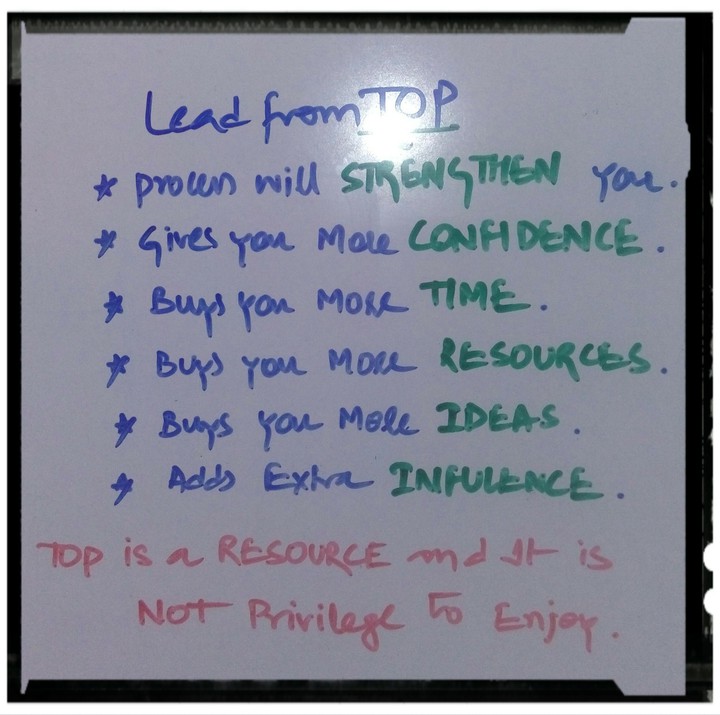 Lead from TOP
* Process will STRENGTHEN you.
* Gives you More CONFIDENCE.
* Buys you More TIME.
* Buys you More RESOURCES.
* Buys you More IDEAS.
* Adds Extra INFULENCE.
TOP is a RESOURCE and It is
NOT Privilege to Enjoy.